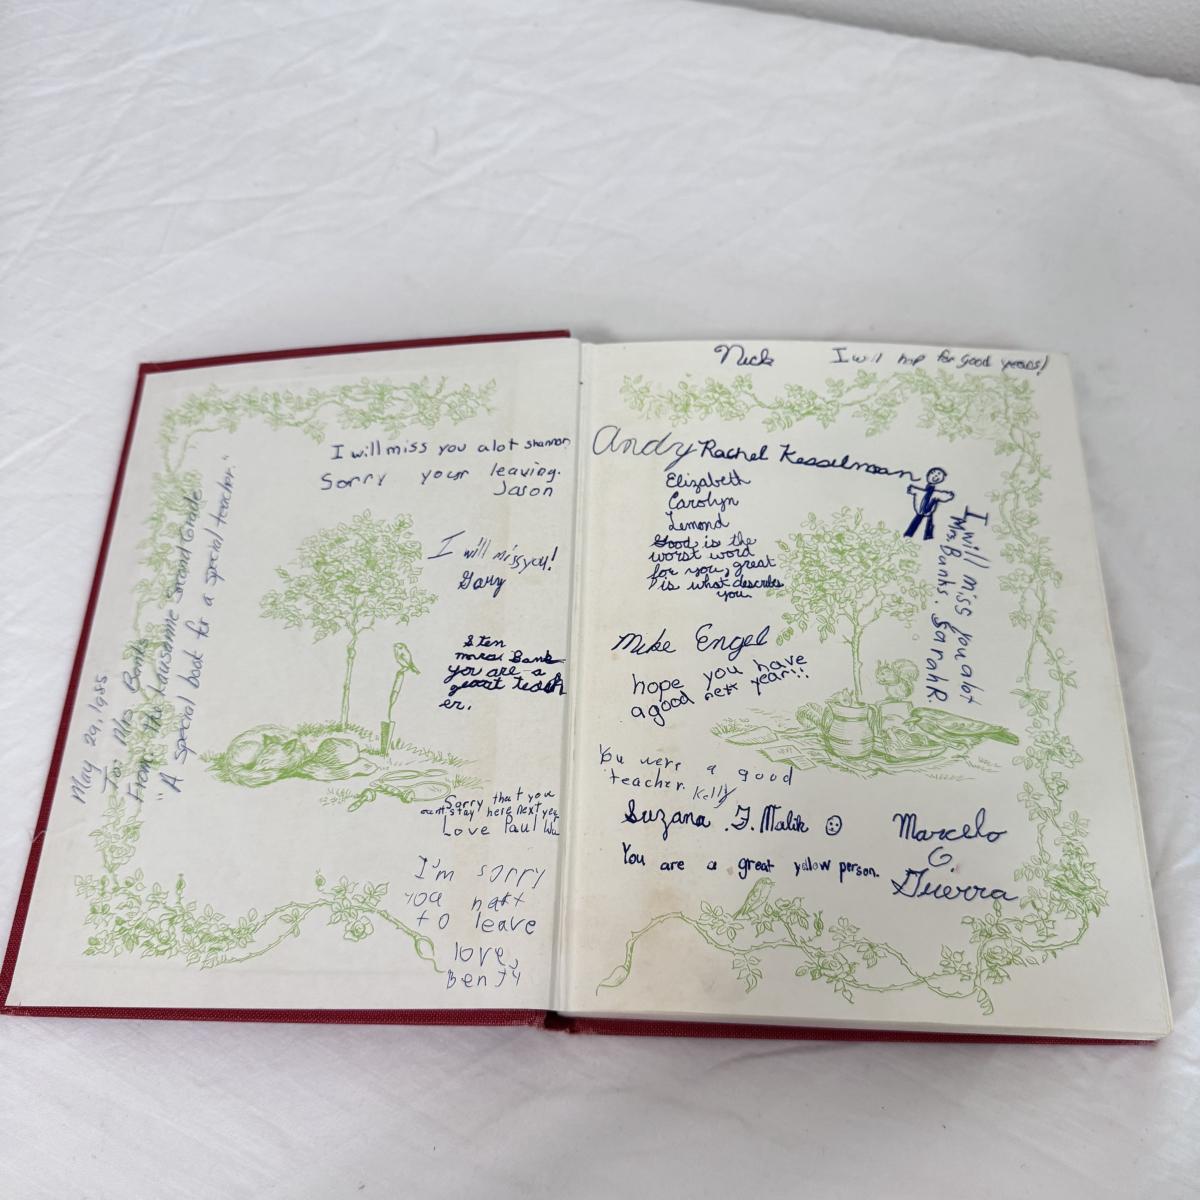 May 29, 1985
To: Mrs Banks
From: the Lausanne Second Grade
"A special book for a special teacher."
I will miss you alot shannon
Sorry your leaving.
Jason
I will miss you!
Gary
Sten
you are a
great teach
er.
Sorry that you
stay here next
Love Paul
I'm sorry
you haft
to leave
love,
Benjy
Nick
I will hop for good years!
Andy Rachel Kesselman
Elizabeth
Carolyn
Lemond
Good is the
worst word
for you, great
is what describes
you.
I will miss you alot
Mrs Banks. Sarah R.
Mike Engel
hope you have
a good next year!!!
You were a good
teacher. Kelly
Suzana .F. Malik
You are a great yalow person.
Marcelo
G.
Guerra